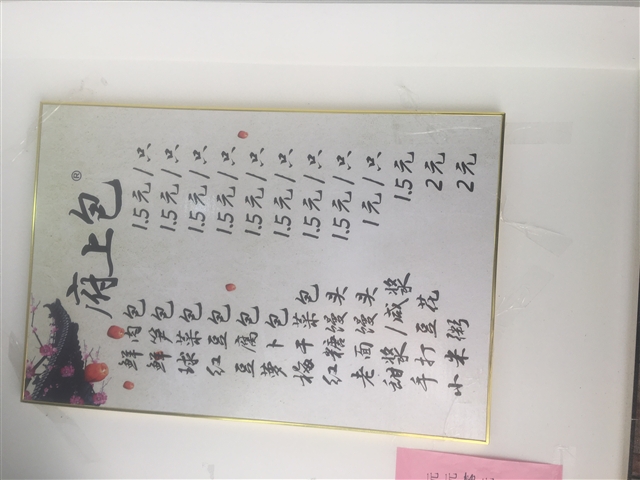 府上包®
鲜肉包 1.5元/只
鲜笋包 1.5元/只
球菜包 1.5元/只
红豆包 1.5元/只
豆腐包 1.5元/只
萝卜包 1.5元/只
梅干菜包 1.5元/只
红糖馒头 1.5元/只
老面馒头 1元/只
甜浆/咸浆 1.5元
手打豆花 2元
小米粥 2元
元
元